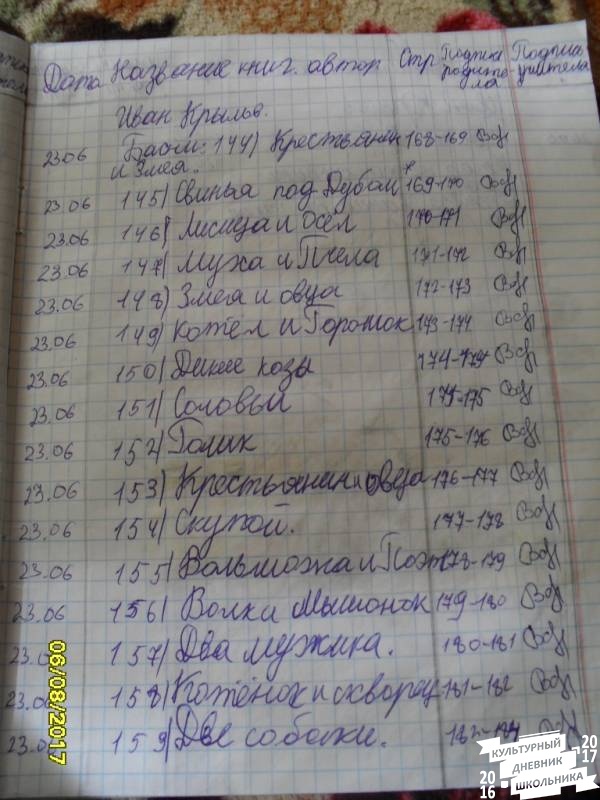 Дата Название книг. автор Стр Подпись родителя Подпись учителя
Иван Крылов.
23.06 Басни: 144) Крестьянин и Змея. 168-169
23.06 145) Свинья под Дубом 169-170
23.06 146) Лисица и Осел 170-171
23.06 147) Муха и Пчела 171-172
23.06 148) Змея и овца 172-173
23.06 149) Котел и Горшок 173-174
23.06 150) Дикие козы
23.06 151) Соловьи 175
23.06 152) Голик 175-176
23.06 153) Крестьянин и овца 176-177
23.06 154) Скупой. 177-178
23.06 155) Вольможа и Поэт 178-179
23.06 156) Волк и Мышонок 179-180
23. 157) Два мужика. 180-181
23.0 158) Котёнок и скворец 181-182
23.0 159) Две собаки.
06/08/2017
КУЛЬТУРНЫЙ
ДНЕВНИК
ШКОЛЬНИКА
2016
2017